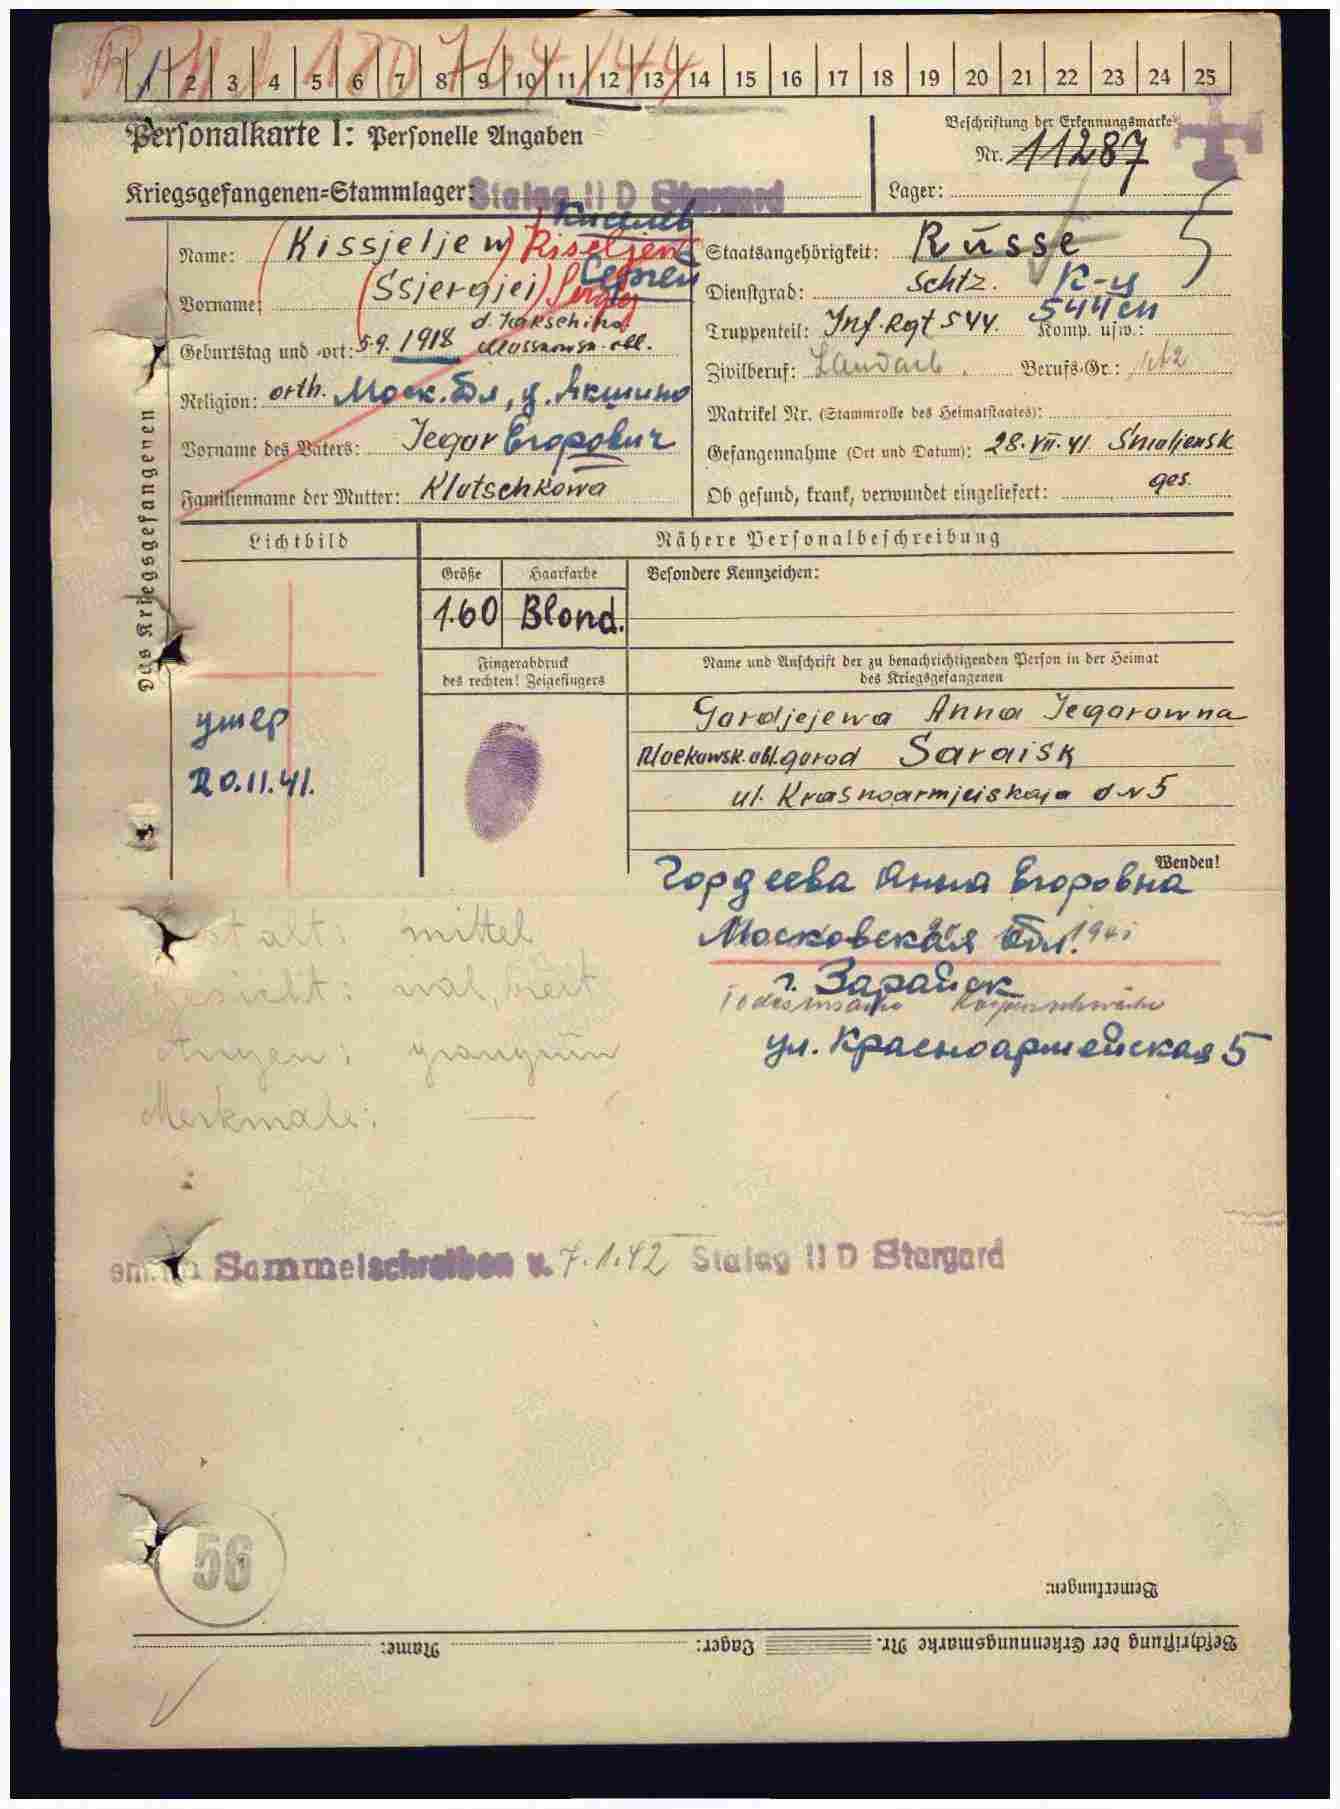 1 2 3 4 5 6 7 8 9 10 11 12 13 14 15 16 17 18 19 20 21 22 23 24 25
Personalkarte I: Personelle Angaben
Beschriftung der Erkennungsmarke
Nr. 11287
Kriegsgefangenen=Stammlager: Stalag II D Stargard
Lager:
Des Kriegsgefangenen
Киселев
Name: (Kissjeljew) Kiseljew
Vorname: (Ssjergjei) Sergej Сергей
Geburtstag und -ort: 5.9. 1918 d. Jakschino
Religion: orth. Моск. Обл, д. Якшино
Vorname des Vaters: Jegor Егорович
Familienname der Mutter: Klotschkowa
Staatsangehörigkeit: Russe
Dienstgrad: Schtz. К-ц
544 сп
Truppenteil: Inf. Rgt 544. Komp. usw.:
Zivilberuf: Landarb. Berufs-Gr.:
Matrikel Nr. (Stammrolle des Heimatstaates):
Gefangennahme (Ort und Datum): 28.VII.41 Smoljensk
Ob gesund, krank, verwundet eingeliefert: ges.
Lichtbild
Nähere Personalbeschreibung
Größe Haarfarbe Besondere Kennzeichen:
1.60 Blond.
Fingerabdruck
des rechten! Zeigefingers
Name und Anschrift der zu benachrichtigenden Person in der Heimat
des Kriegsgefangenen
умер
20.11.41.
Gordjejewa Anna Jegorowna
Mockowsk. obl. gorod Saraisk
ul. Krasnoarmjeiskaja d N 5
Wenden!
Гордеева Анна Егоровна
Московская обл.
г. Зарайск
Todesursache Körperschwäche
ул. Красноармейская 5
Gestalt: mittel
Gesicht: oval, breit
Augen: graugrün
Merkmale: —
Sammelschreiben v. 7.1.42 Stalag II D Stargard
56
Bemerkungen:
Beschriftung der Erkennungsmarke Nr. Lager: Name: